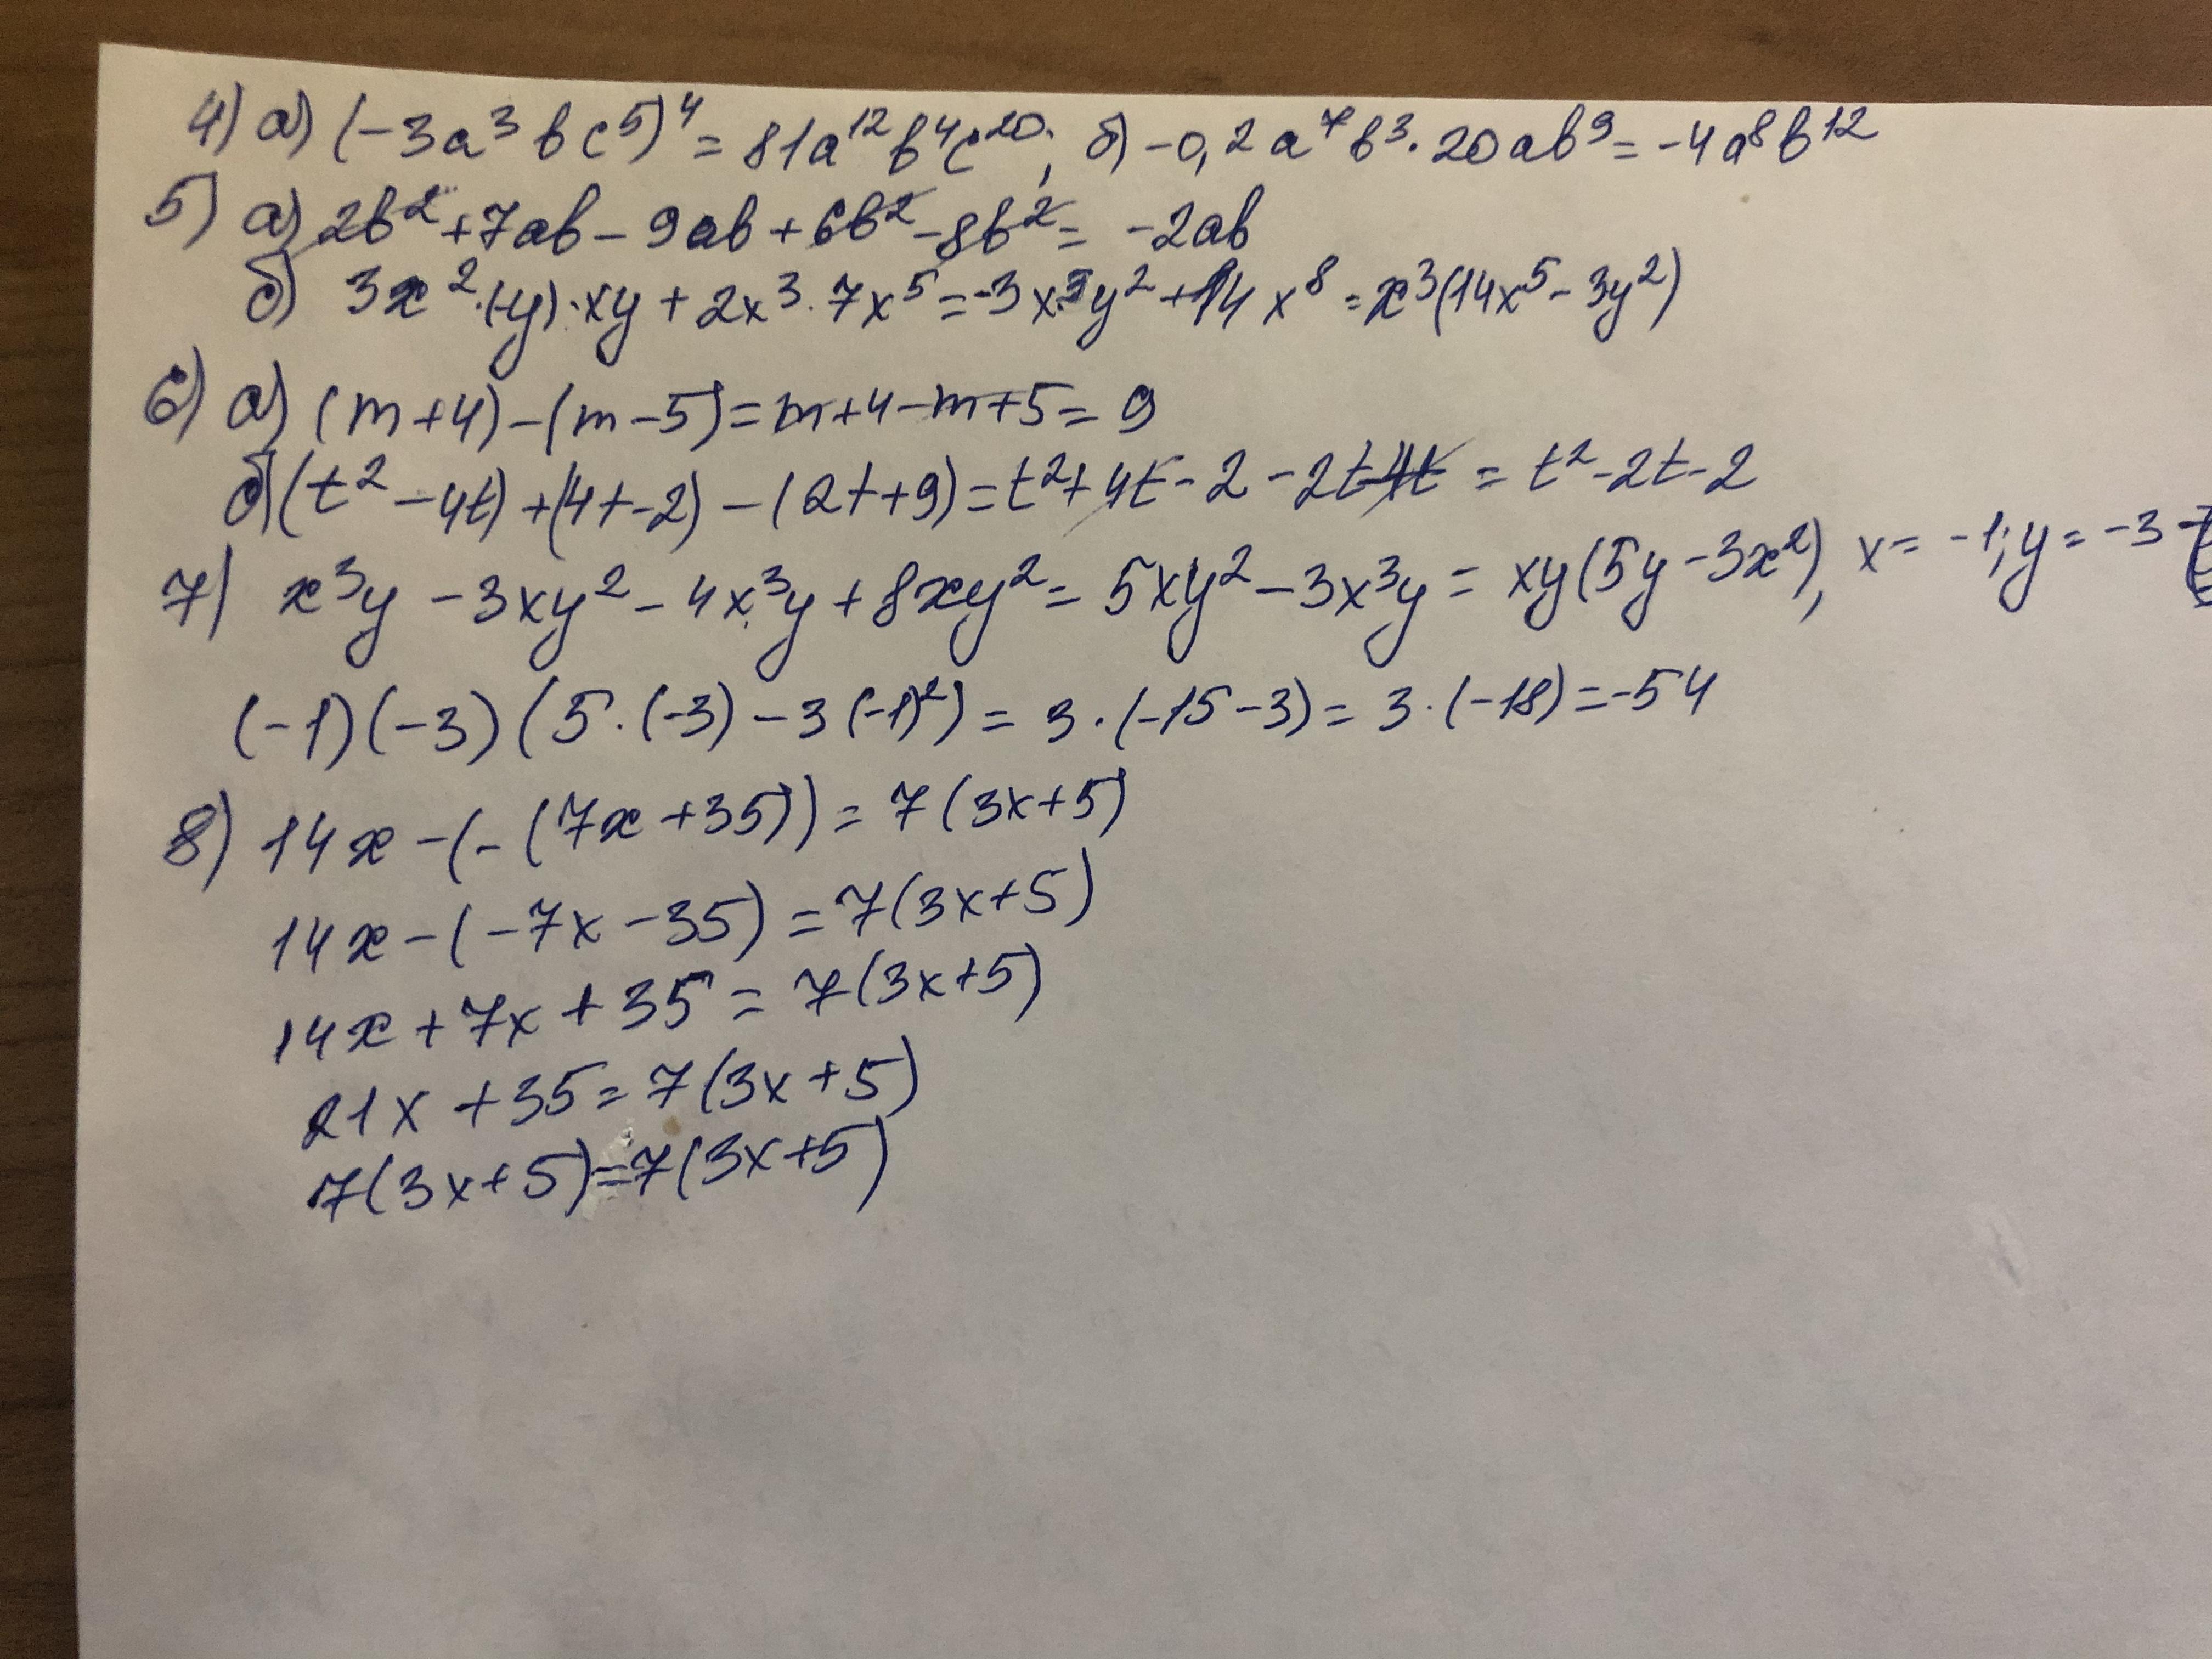 4) а) (-3a³bc⁵)⁴ = 81a¹²b⁴c²⁰; б) -0,2a⁷b³·20ab⁹ = -4a⁸b¹²
5) а) 2b² + 7ab - 9ab + 6b² - 8b² = -2ab
б) 3x²·(-y)·xy + 2x³·7x⁵ = -3x³y² + 14x⁸ = x³(14x⁵ - 3y²)
6) а) (m+4) - (m-5) = m+4-m+5 = 9
б) (t² - 4t) + (4t-2) - (2t+9) = t² + 4t - 2 - 2t - 4t = t² - 2t - 2
7) x³y - 3xy² - 4x³y + 8xy² = 5xy² - 3x³y = xy(5y - 3x²), x = -1; y = -3
(-1)(-3)(5·(-3) - 3(-1)²) = 3·(-15-3) = 3·(-18) = -54
8) 14x - (-(7x+35)) = 7(3x+5)
14x - (-7x - 35) = 7(3x+5)
14x + 7x + 35 = 7(3x+5)
21x + 35 = 7(3x+5)
7(3x+5) = 7(3x+5)